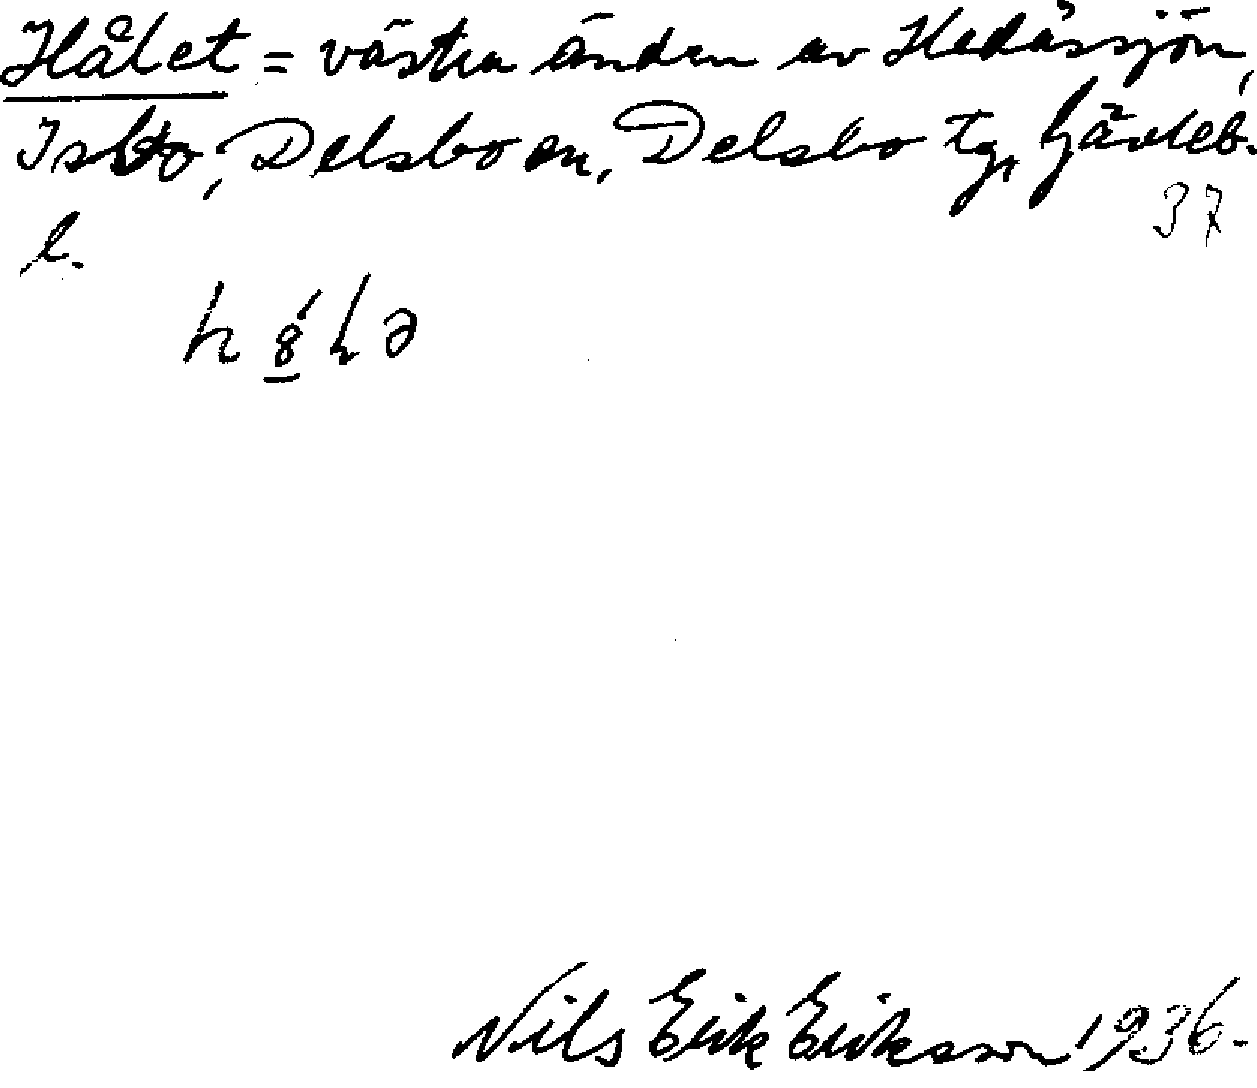 Hålet = västra änden av Hedåssjön,
Isbo, Delsbo sn, Delsbo tg, Gävleb.
37
l.
Nils Erik Eriksson 1936.